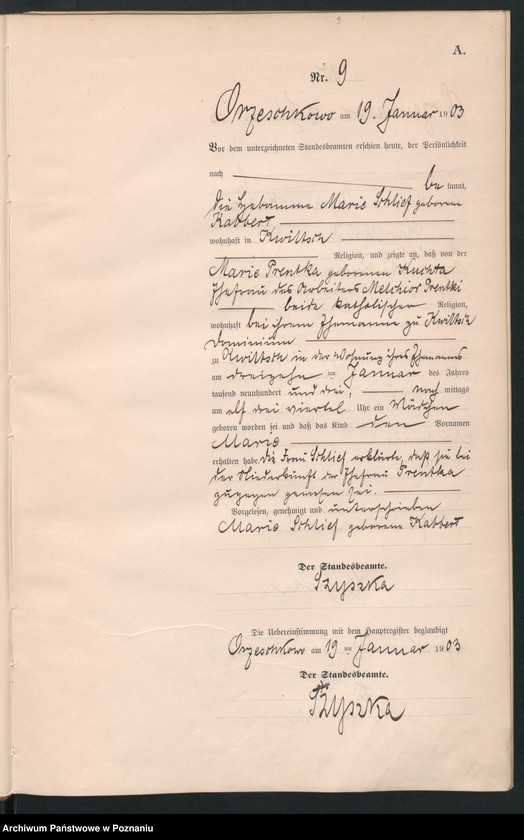 A.
Nr. 9
Orzeschkowo am 19. Januar 1903
Vor dem unterzeichneten Standesbeamten erschien heute, der Persönlichkeit
nach
be kannt,
die Hebamme Marie Schlief geborene
Kabbert
wohnhaft in Kwiltsch
Religion, und zeigte an, daß von der
Marie Prentka geborenen Kuchta
Ehefrau des Arbeiters Melchior Prentki
beide katholischer Religion,
wohnhaft bei ihrem Ehemanne zu Kwiltsch
Dominium
zu Kwiltsch in der Wohnung ihres Ehemannes
am dreizehn ten Januar des Jahres
tausend neunhundert und drei, nach mittags
um elf drei viertel Uhr ein Mädchen
geboren worden sei und daß das Kind den Vornamen
Marie
erhalten habe. Die Frau Schlief erklärte, daß sie bei
der Niederkunft der Ehefrau Prentka
zugegen gewesen sei.
Vorgelesen, genehmigt und unterschrieben
Marie Schlief geborene Kabbert
Der Standesbeamte.
Szyszka
Die Uebereinstimmung mit dem Hauptregister beglaubigt
Orzeschkowo am 19 ten Januar 1903
Der Standesbeamte.
Szyszka
Archiwum Państwowe w Poznaniu